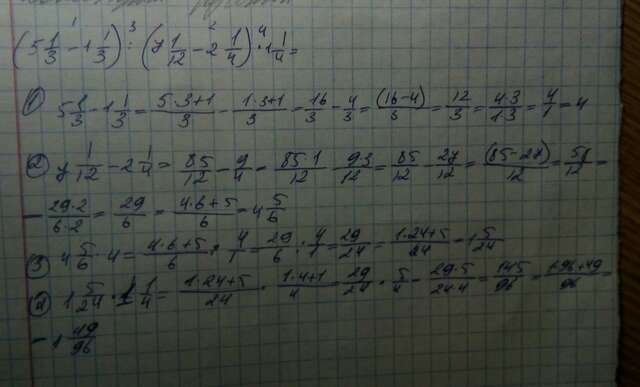 (5 1/3 - 1 1/3) : (7 1/12 - 2 1/4) · 1 1/4 =
1 2 3 4
① 5 1/3 - 1 1/3 = (5·3+1)/3 - (1·3+1)/3 = 16/3 - 4/3 = (16-4)/3 = 12/3 = (4·3)/(1·3) = 4/1 = 4
② 7 1/12 - 2 1/4 = 85/12 - 9/4 = (85·1)/12 - (9·3)/12 = 85/12 - 27/12 = (85-27)/12 = 58/12 =
= (29·2)/(6·2) = 29/6 = (4·6+5)/6 = 4 5/6
③ 4 5/6 · 4 = (4·6+5)/6 : 4/1 = 29/6 · 4/1 = 29/24 = (1·24+5)/24 = 1 5/24
④ 1 5/24 · 1 1/4 = (1·24+5)/24 · (1·4+1)/4 = 29/24 · 5/4 = (29·5)/(24·4) = 145/96 = (1·96+49)/96 =
= 1 49/96